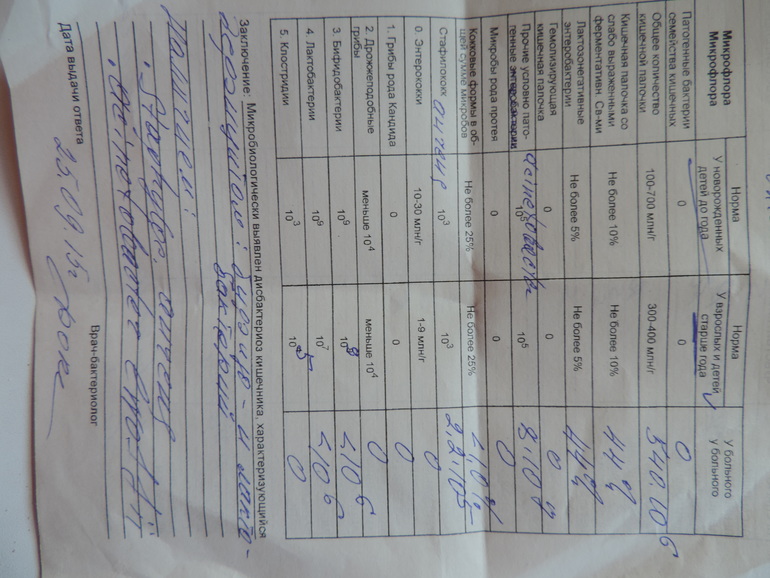 Микрофлора Микрофлора | Норма У новорожденных детей до года | Норма У взрослых и детей старше года | У больного У больного
Патогенные бактерии семейства кишечных | 0 | 0 | 0
Общее количество кишечной палочки | 100-700 млн/г | 300-400 млн/г | 340.10 6
Кишечная палочка со слабо выраженными ферментативн. Св-ми | Не более 10% | Не более 10% | 44%
Лактозонегативные энтеробактерии | Не более 5% | Не более 5% | 44%
Гемолизирующая кишечная палочка | 0 | 0 | 0
Прочие условно пато-генные энтеробактерии | 10⁵ | 10⁵ | 8.10
Микробы рода протея | 0 | 0 | 0
Кокковые формы в об-щей сумме микробов | Не более 25% | Не более 25%
Стафилококк | 10³ | 10³ | 2,2.10 5
0. Энтерококки | 10-30 млн/г | 1-9 млн/г | 0
1. Грибы рода Кандида | 0 | 0 | 0
2. Дрожжеподобные грибы | меньше 10⁴ | меньше 10⁴ | 0
3. Бифидобактерии | 10⁹ | 10 | <10 6
4. Лактобактерии | 10⁹ | 10⁷ | <10 6
5. Клостридии | 10³ | 10 | 0
Заключение: Микробиологически выявлен дисбактериоз кишечника, характеризующийся
дефицитом: бифидо- и лакто-
бактерий
наличием:
Врач-бактериолог
Дата выдачи ответа 25.09.15г